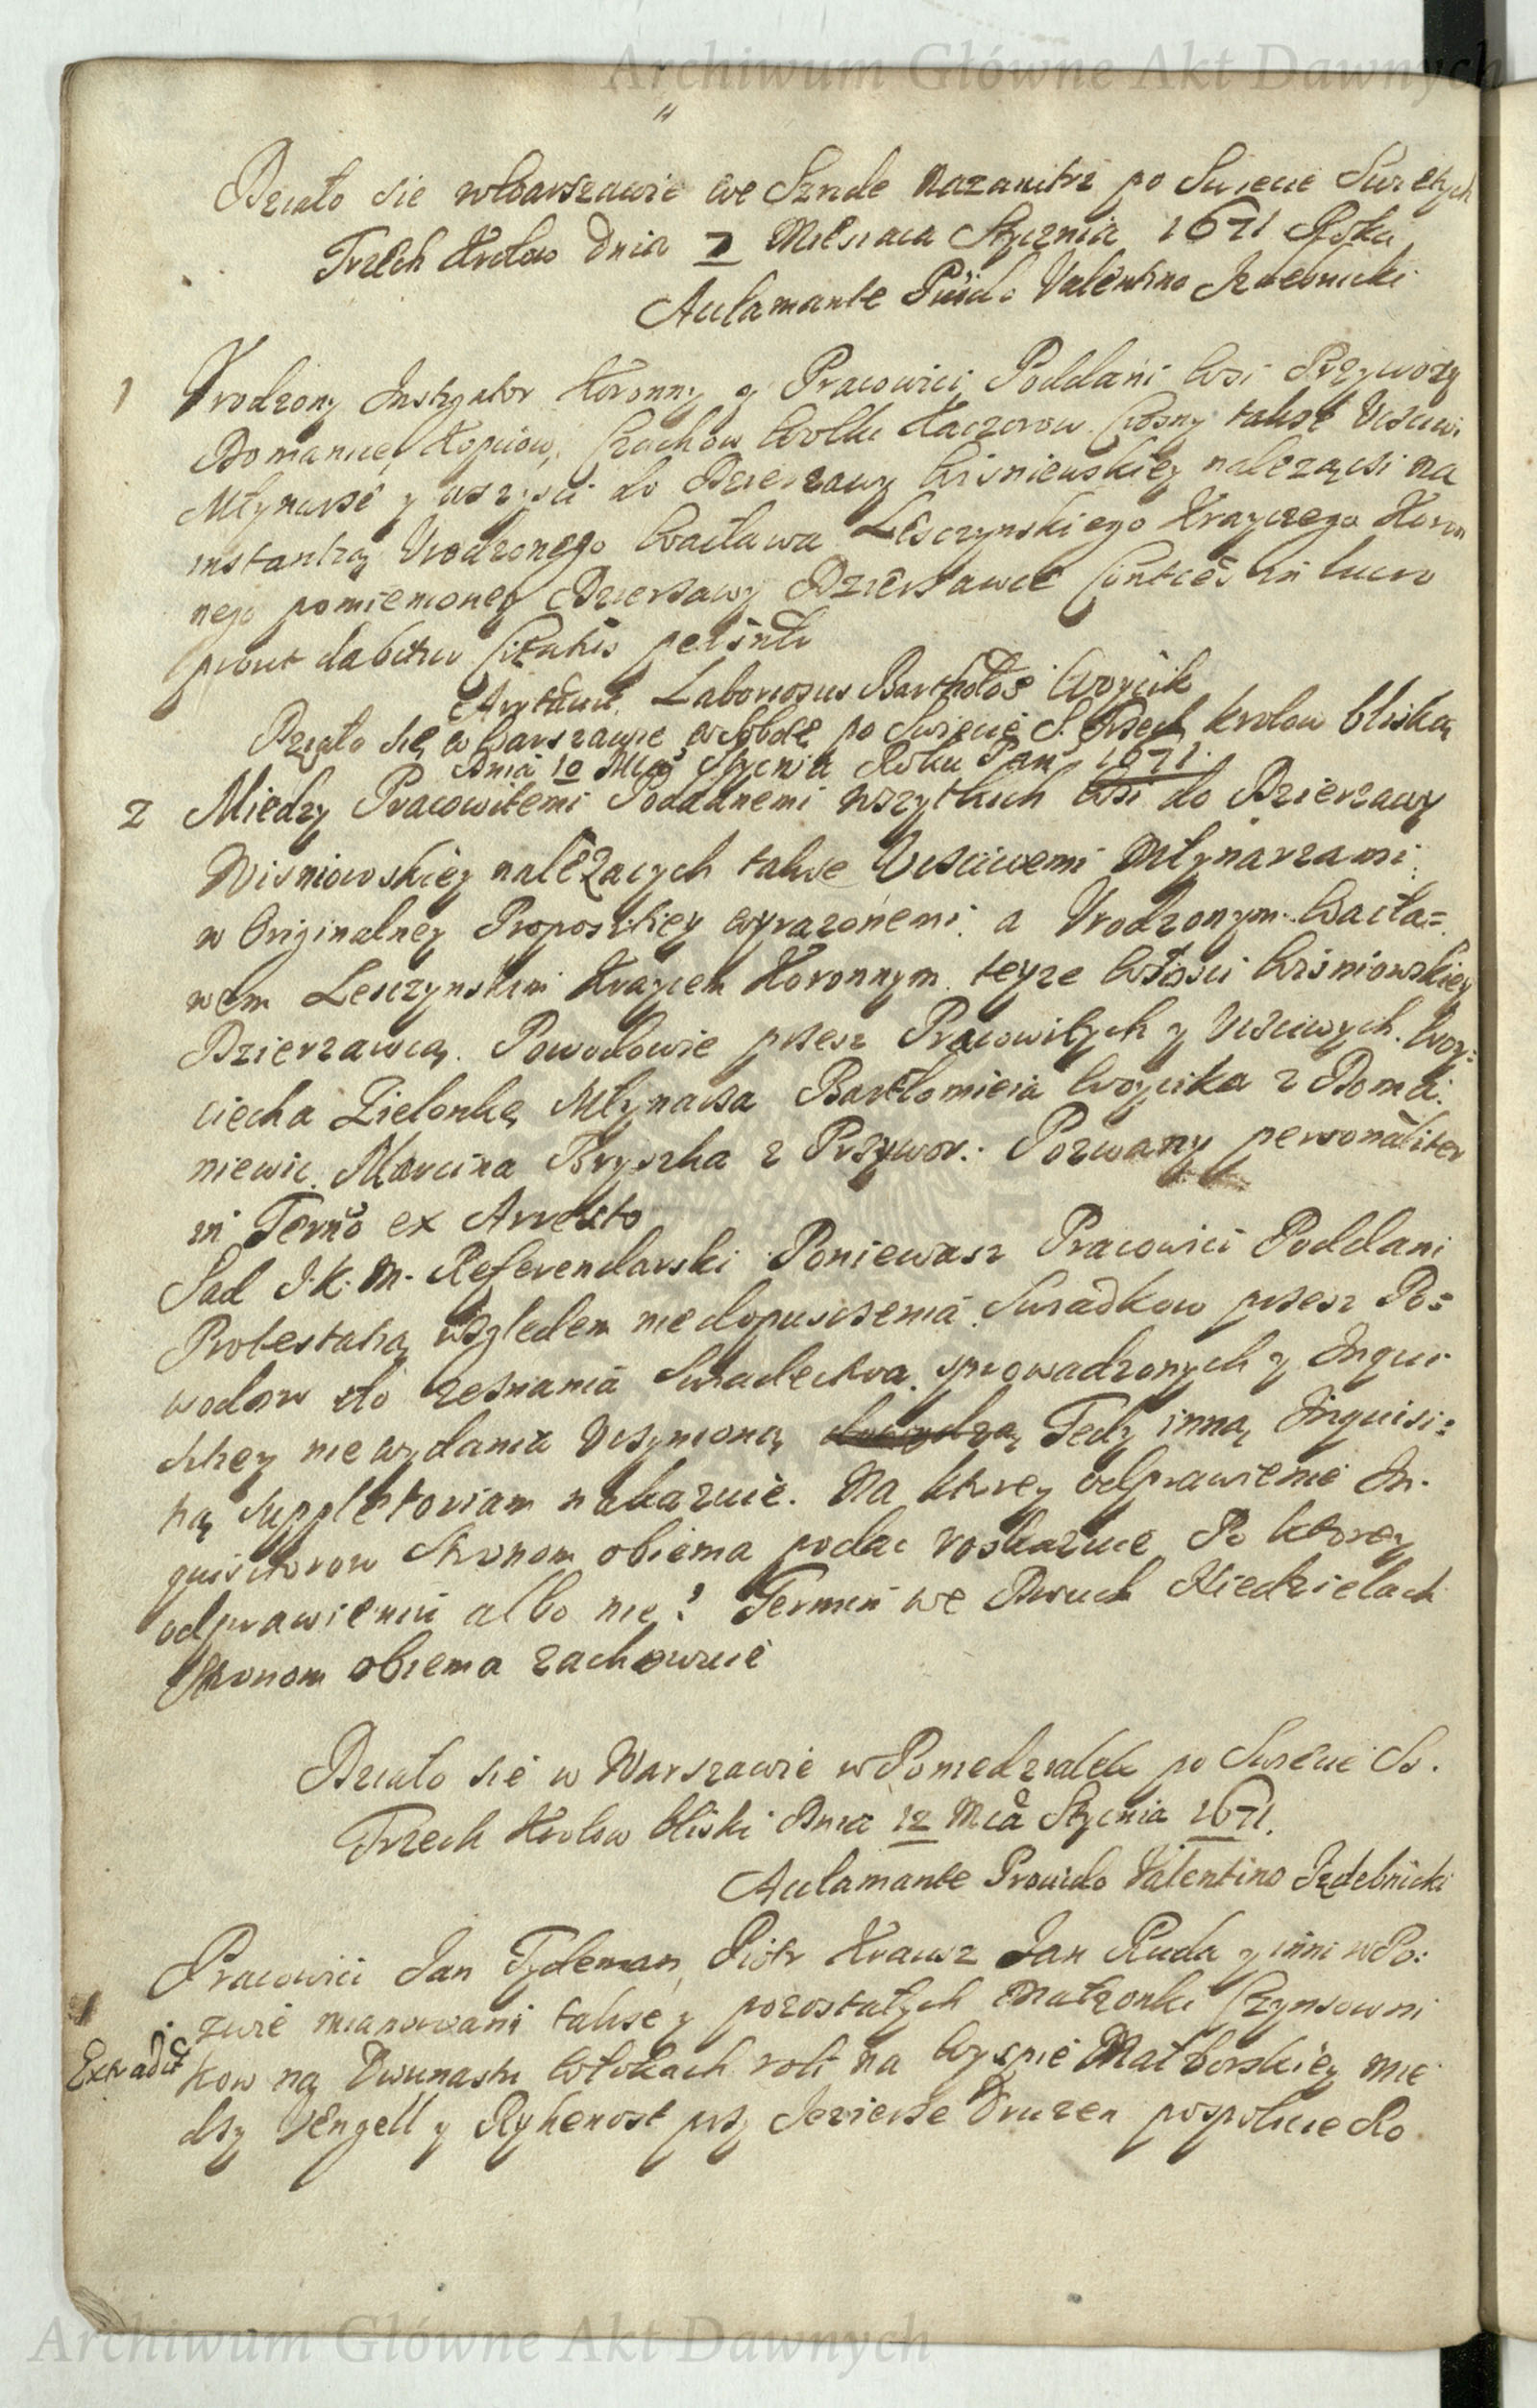 Archiwum Główne Akt Dawnych
Działo sie w Warszawie we Srzode nazaiutrz po Swiecie Swietych
Trzech Krolow Dnia 7 Miesiaca Stycznia 1671 Roku
Acclamante Prŭido Valentino Izdebnicki
1 Vrodzony Instygator Koronny y Pracowici Poddani Wsi Przywozy
Domanice, Kopciow, Czachow Wolki Kaczorow Ciosny takze Vcsciwi
Młynarze y wszysci do Dzierzawy Wisniewskiey nalezącsi na
instantią Vrodzonego Wacława Lesczynskiego Krayczego Koron
nego pomienioney Dzierzawy Dzierzawce Contces in lucro
prout dabitur Citatis
Laboriosus Bartholos Woycik
Działo się w Warszawie w Sobote po Swięcie S. Trzech krolow bliską
Dnia 10 Mca Stycnia Roku Pan 1671.
2 Miedzy Pracowitemi Poddanemi wszytkich Wsi do Dzierzawy
Wisniowskiey naleẓacych takze Vcsciwemi Młynarzami
w Originalney Propositiey wyrazonemi a Vrodzonym Wacła=
wem Lesczynskim Krayciem Koronnym teyze Włosci Wisniowskiey
Dzierzawcą. Powodowie przesz Pracowitych y Vcsciwych. Woy=
ciecha Zielonkę Młynarza Bartłomieia Woycika z Doma.
niewic. Marcina Bryszka z Przywoz.: Pozwany personaliter
in Termo ex Arresto
Sad J. K. M. Referendarski Poniewasz Pracowici Poddani
Protestatią wzgledem niedopusczenia Swiadkow przesz Po=
wodow do zeznania Swiadectwa sprowadzonych y Inqui
sitiey niewydania Vczynioną Tedy inną Inquisi=
tią Suppletoriam nakazuie. Na ktorey odprawienie In.
quisitorow Stronom obiema podac roskazuie Po ktorey
odprawieniu albo nie? Termin we Dwuch Niedzielach
Stronom obiema zachowuie
Działo sie w Warszawie w Poniedziałek po Swiecie Ss.
Trzech Krolow bliski Dnia 12 Mca Stycnia 1671.
Acclamante Prouido Valentino Izdebnicki
1 Pracowici Jan Tydeman, Piotr Krausz Jan Ruda y inni w Po:
zwie mianowani takze y pozostałych Małzonki Czynsowni
Extradit
kow na Dwunastu Włokach roli na Wyspie Malborskiey mie
dzy Vengell y Ryhenost przy Jezierze Druzen pospolicie Ro
Archiwum Główne Akt Dawnych